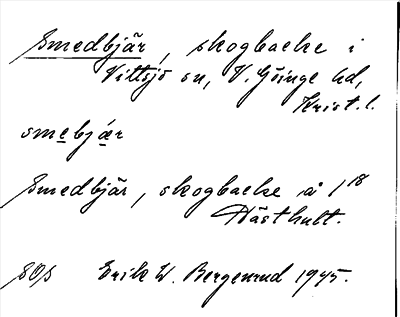 Smedbjär, skogbacke i
Vittsjö sn, V. Göinge hd,
Krist. l.
smebjær
Smedbjär, skogbacke å 1/18
Hästhult.
Erik W. Bergenrud 1945.